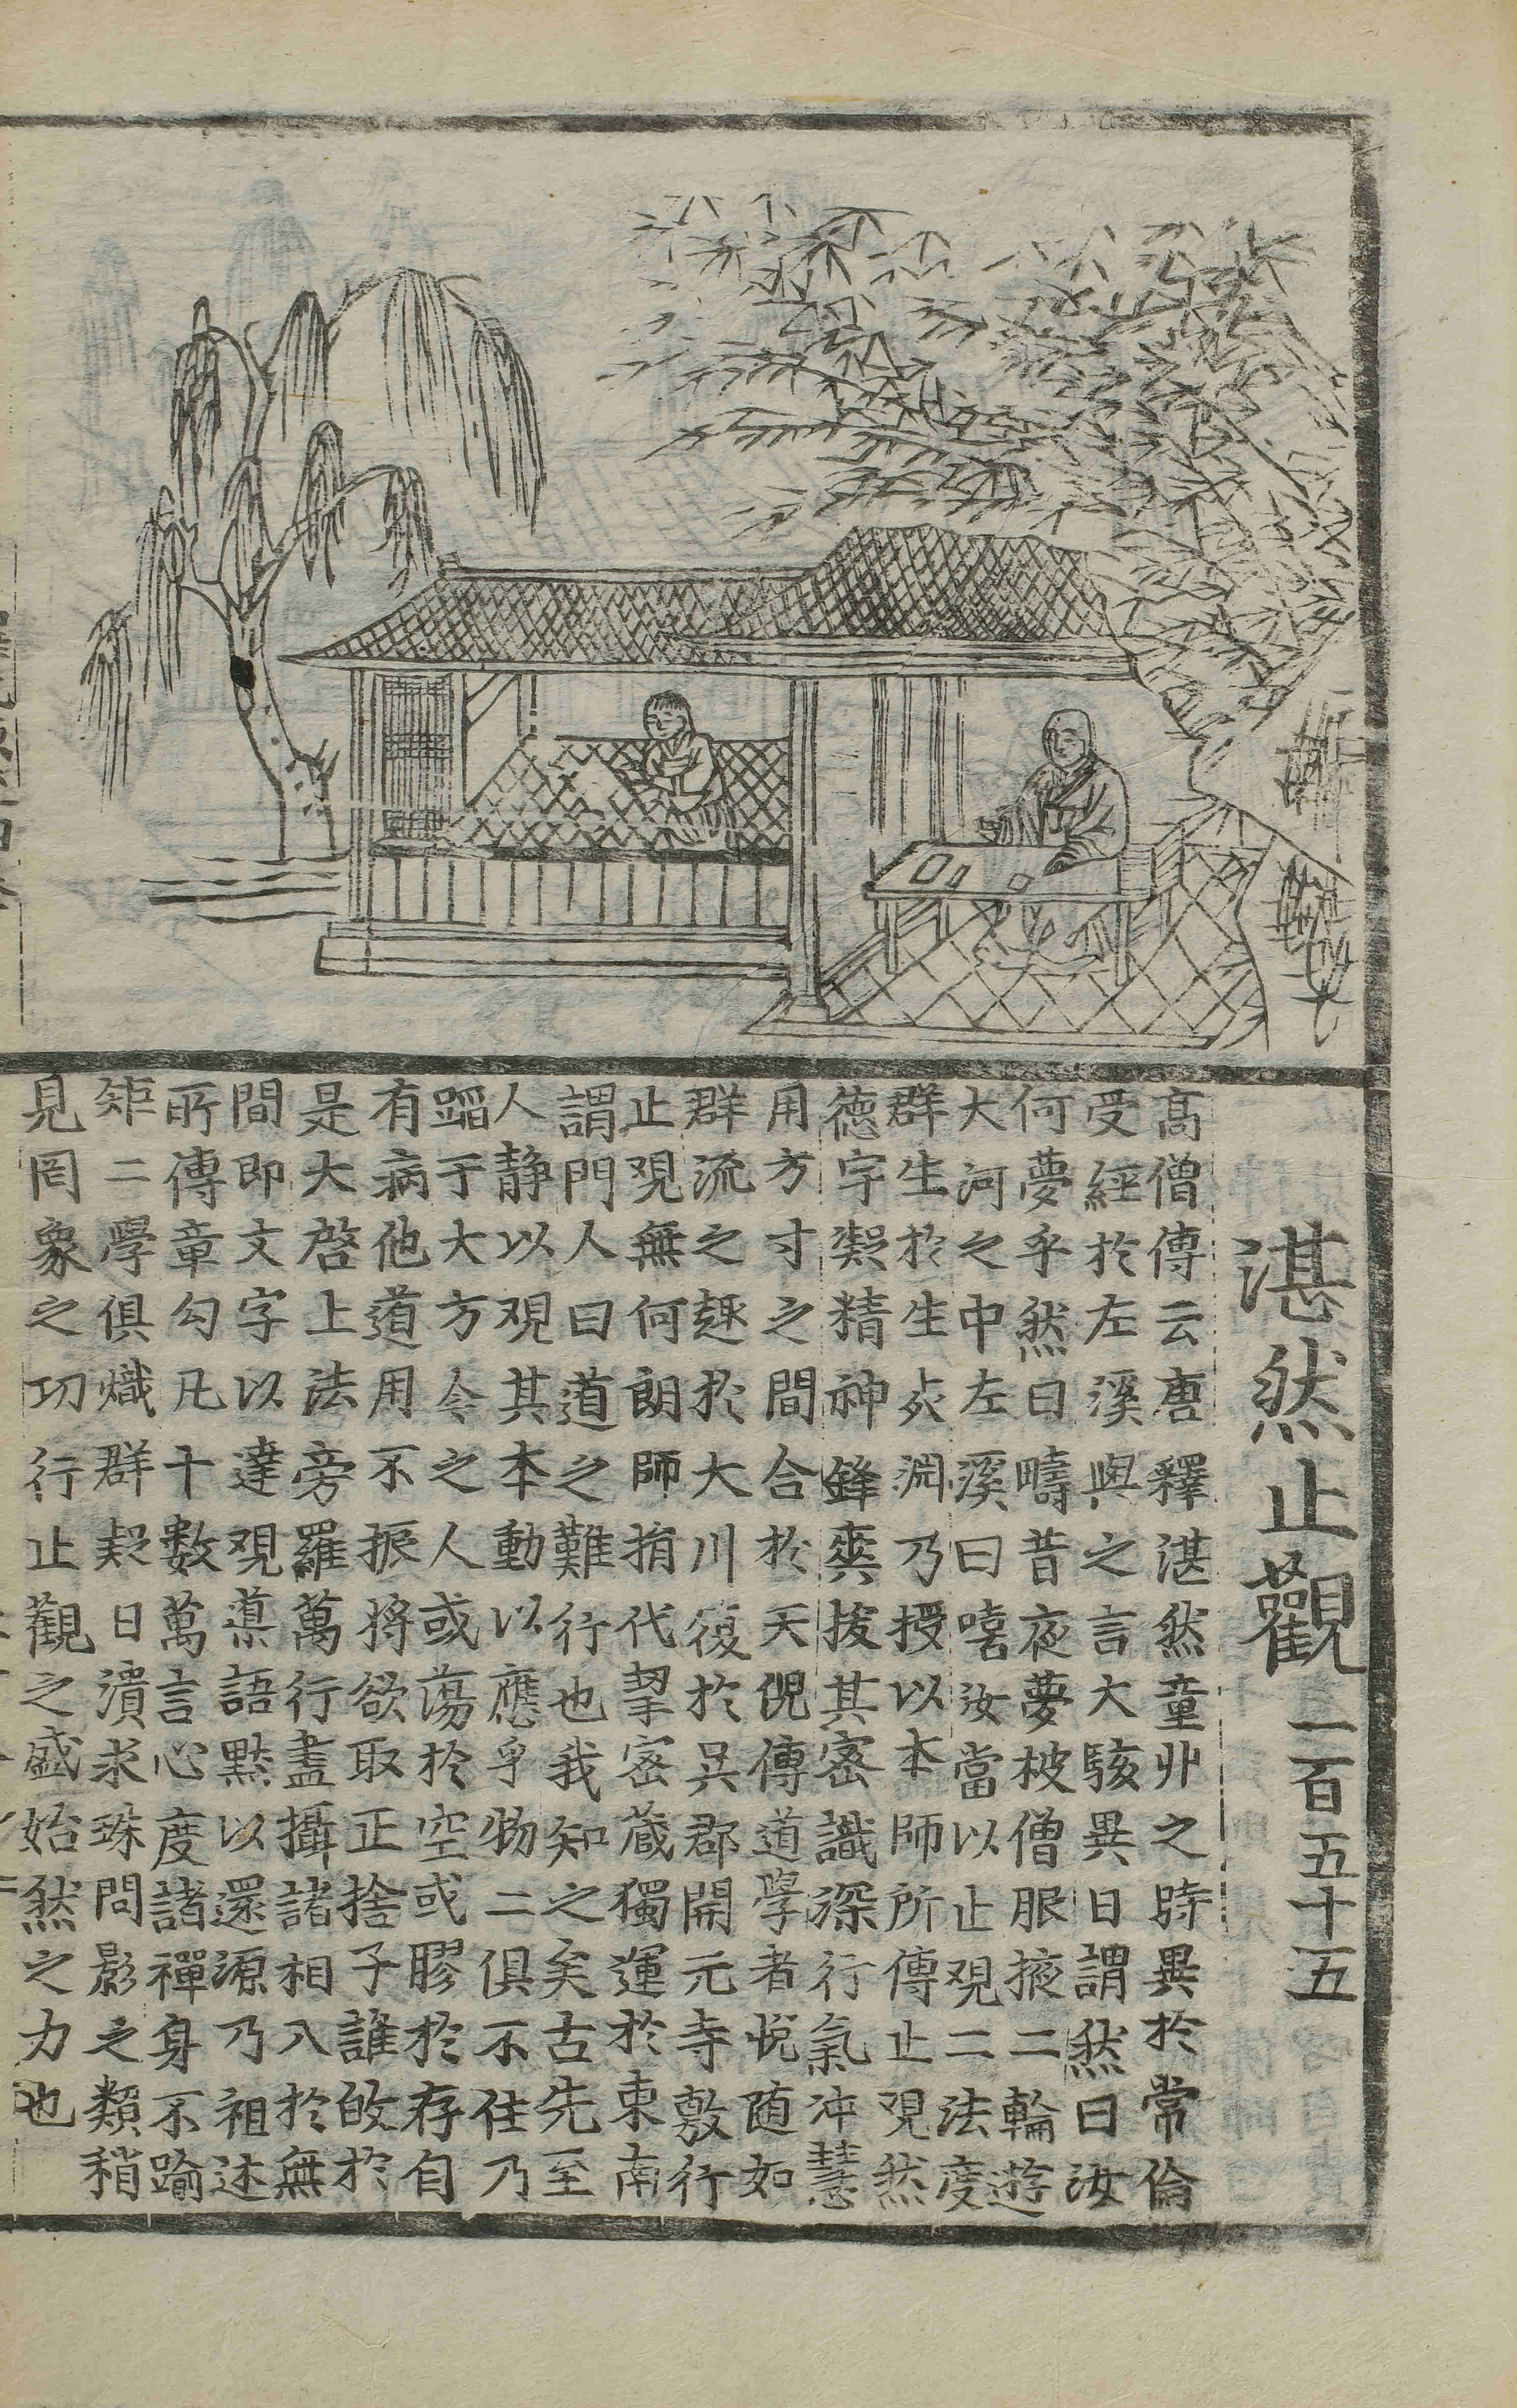 湛然止觀一百五十五
髙僧傳云唐釋湛然童丱之時異於常倫
受經於左溪與之言大駭異日謂然曰汝
何夢乎然曰疇昔夜夢披僧服掖二輪遊
大河之中左溪曰嘻汝當以止观二法度
群生於生死淵乃授以本師所傳止观然
德宇凝精神鋒爽拔其密識深行氣冲慧
用方寸之間合於天倪傳道學者悦随如
群流之趣於大川復於吳郡開元寺敷行
止观無何朗師捐代挈密藏獨運於東南
謂門人曰道之難行也我知之矣古先至
人静以观其本動以應乎物二俱不住乃
蹈于大方今之人或蕩於空或膠於存自
有病他道用不振將欲取正捨予誰皈於
是大啓上法旁羅萬行盡攝諸相入於無
間即文字以達观導語默以還源乃祖述
所傳章句凡十數萬言心度諸禪身不踰
矩二學俱熾群疑日潰求珠問影之類稍
見罔象之功行止觀之盛始然之力也